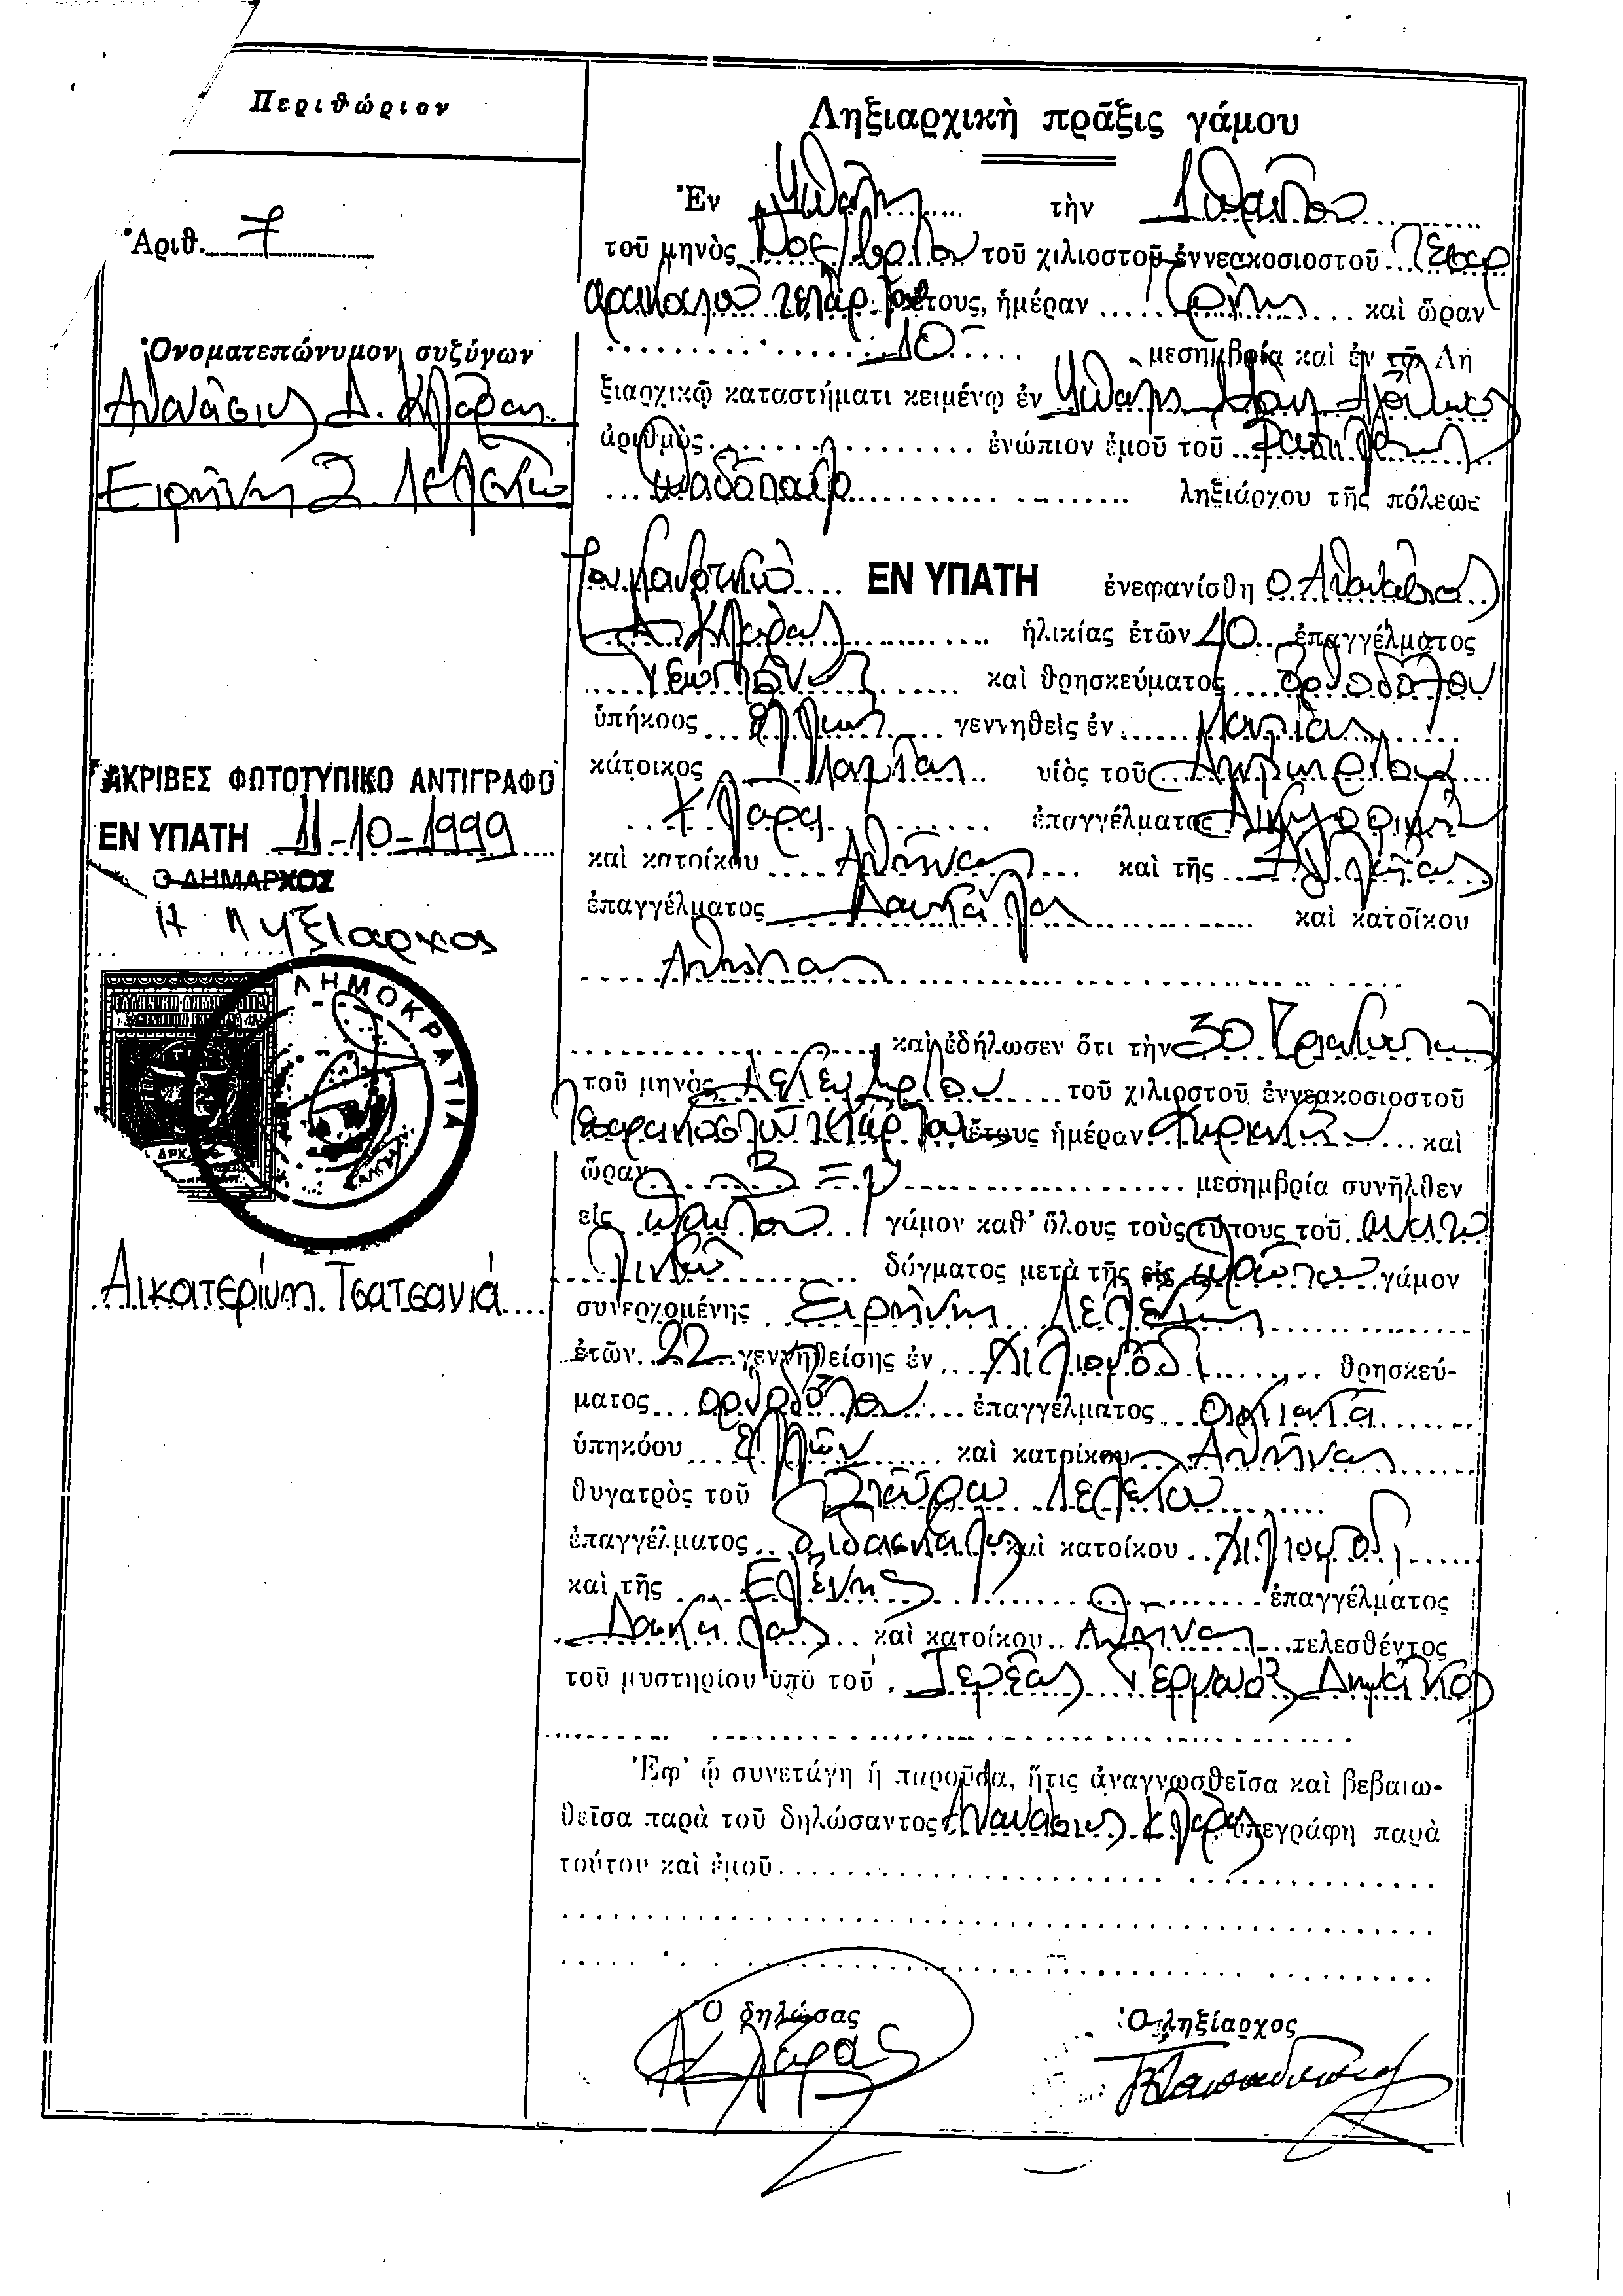 Περιθώριον
Ἀριθ. 7
Ὀνοματεπώνυμον συζύγων
Ἀθανάσιος Δ. Κλάρας
Εἰρήνη Σ.
ΑΚΡΙΒΕΣ ΦΩΤΟΤΥΠΙΚΟ ΑΝΤΙΓΡΑΦΟ
ΕΝ ΥΠΑΤΗ 11-10-1999
Ο ΔΗΜΑΡΧΟΣ
Η Ληξίαρχος
ΔΗΜΟΚΡΑΤΙΑ
Αικατερίνη Τσατσανιά
Ληξιαρχικὴ πρᾶξις γάμου
Ἐν Ὑπάτῃ τὴν
τοῦ μηνὸς τοῦ χιλιοστοῦ ἐννεακοσιοστοῦ τεσσαρ
ακοστοῦ τετάρτου ἔτους, ἡμέραν Τρίτην καὶ ὥραν
10 μεσημβρία καὶ ἐν τῷ Λη
ξιαρχικῷ καταστήματι κειμένῳ ἐν Ὑπάτῃ
ἀριθμὸς ἐνώπιον ἐμοῦ τοῦ
Παπαδοπούλου ληξιάρχου τῆς πόλεως
ΕΝ ΥΠΑΤΗ ἐνεφανίσθη ὁ Ἀθανάσιος
Δ. Κλάρας ἡλικίας ἐτῶν 40 ἐπαγγέλματος
Γεωπόνος καὶ θρησκεύματος Ὀρθοδόξου
ὑπήκοος Ἕλλην γεννηθεὶς ἐν Λαμίᾳ
κάτοικος Λαμίας υἱὸς τοῦ Δημητρίου
Κλάρα ἐπαγγέλματος Δικηγόρου
καὶ κατοίκου Ἀθήνας καὶ τῆς
ἐπαγγέλματος καὶ κατοίκου
Ἀθήνας
καὶ ἐδήλωσεν ὅτι τὴν 30
τοῦ μηνὸς τοῦ χιλιοστοῦ ἐννεακοσιοστοῦ
τεσσαρακοστοῦ τετάρτου ἔτους ἡμέραν καὶ
ὥραν μεσημβρία συνῆλθεν
εἰς πρῶτον γάμον καθ' ὅλους τοὺς τύπους τοῦ ἀνατο
λικοῦ δόγματος μετὰ τῆς εἰς πρῶτον γάμον
συνερχομένης Εἰρήνης
ἐτῶν 22 γεννηθείσης ἐν Χιλιομόδι θρησκεύ-
ματος ὀρθοδόξου ἐπαγγέλματος
ὑπηκόου καὶ κατοίκου Ἀθήνας
θυγατρὸς τοῦ Σταύρου
ἐπαγγέλματος διδασκάλου καὶ κατοίκου Χιλιομόδι
καὶ τῆς Ἑλένης ἐπαγγέλματος
καὶ κατοίκου Ἀθήνας τελεσθέντος
τοῦ μυστηρίου ὑπὸ τοῦ Ἱερέας Γερμανὸς
Ἐφ' ᾧ συνετάγη ἡ παροῦσα, ἥτις ἀναγνωσθεῖσα καὶ βεβαιω-
θεῖσα παρὰ τοῦ δηλώσαντος Ἀθανάσιος Κλάρας ὑπεγράφη παρὰ
τούτου καὶ ἐμοῦ
Ὁ δηλώσας
Ὁ ληξίαρχος
Α Κλάρας